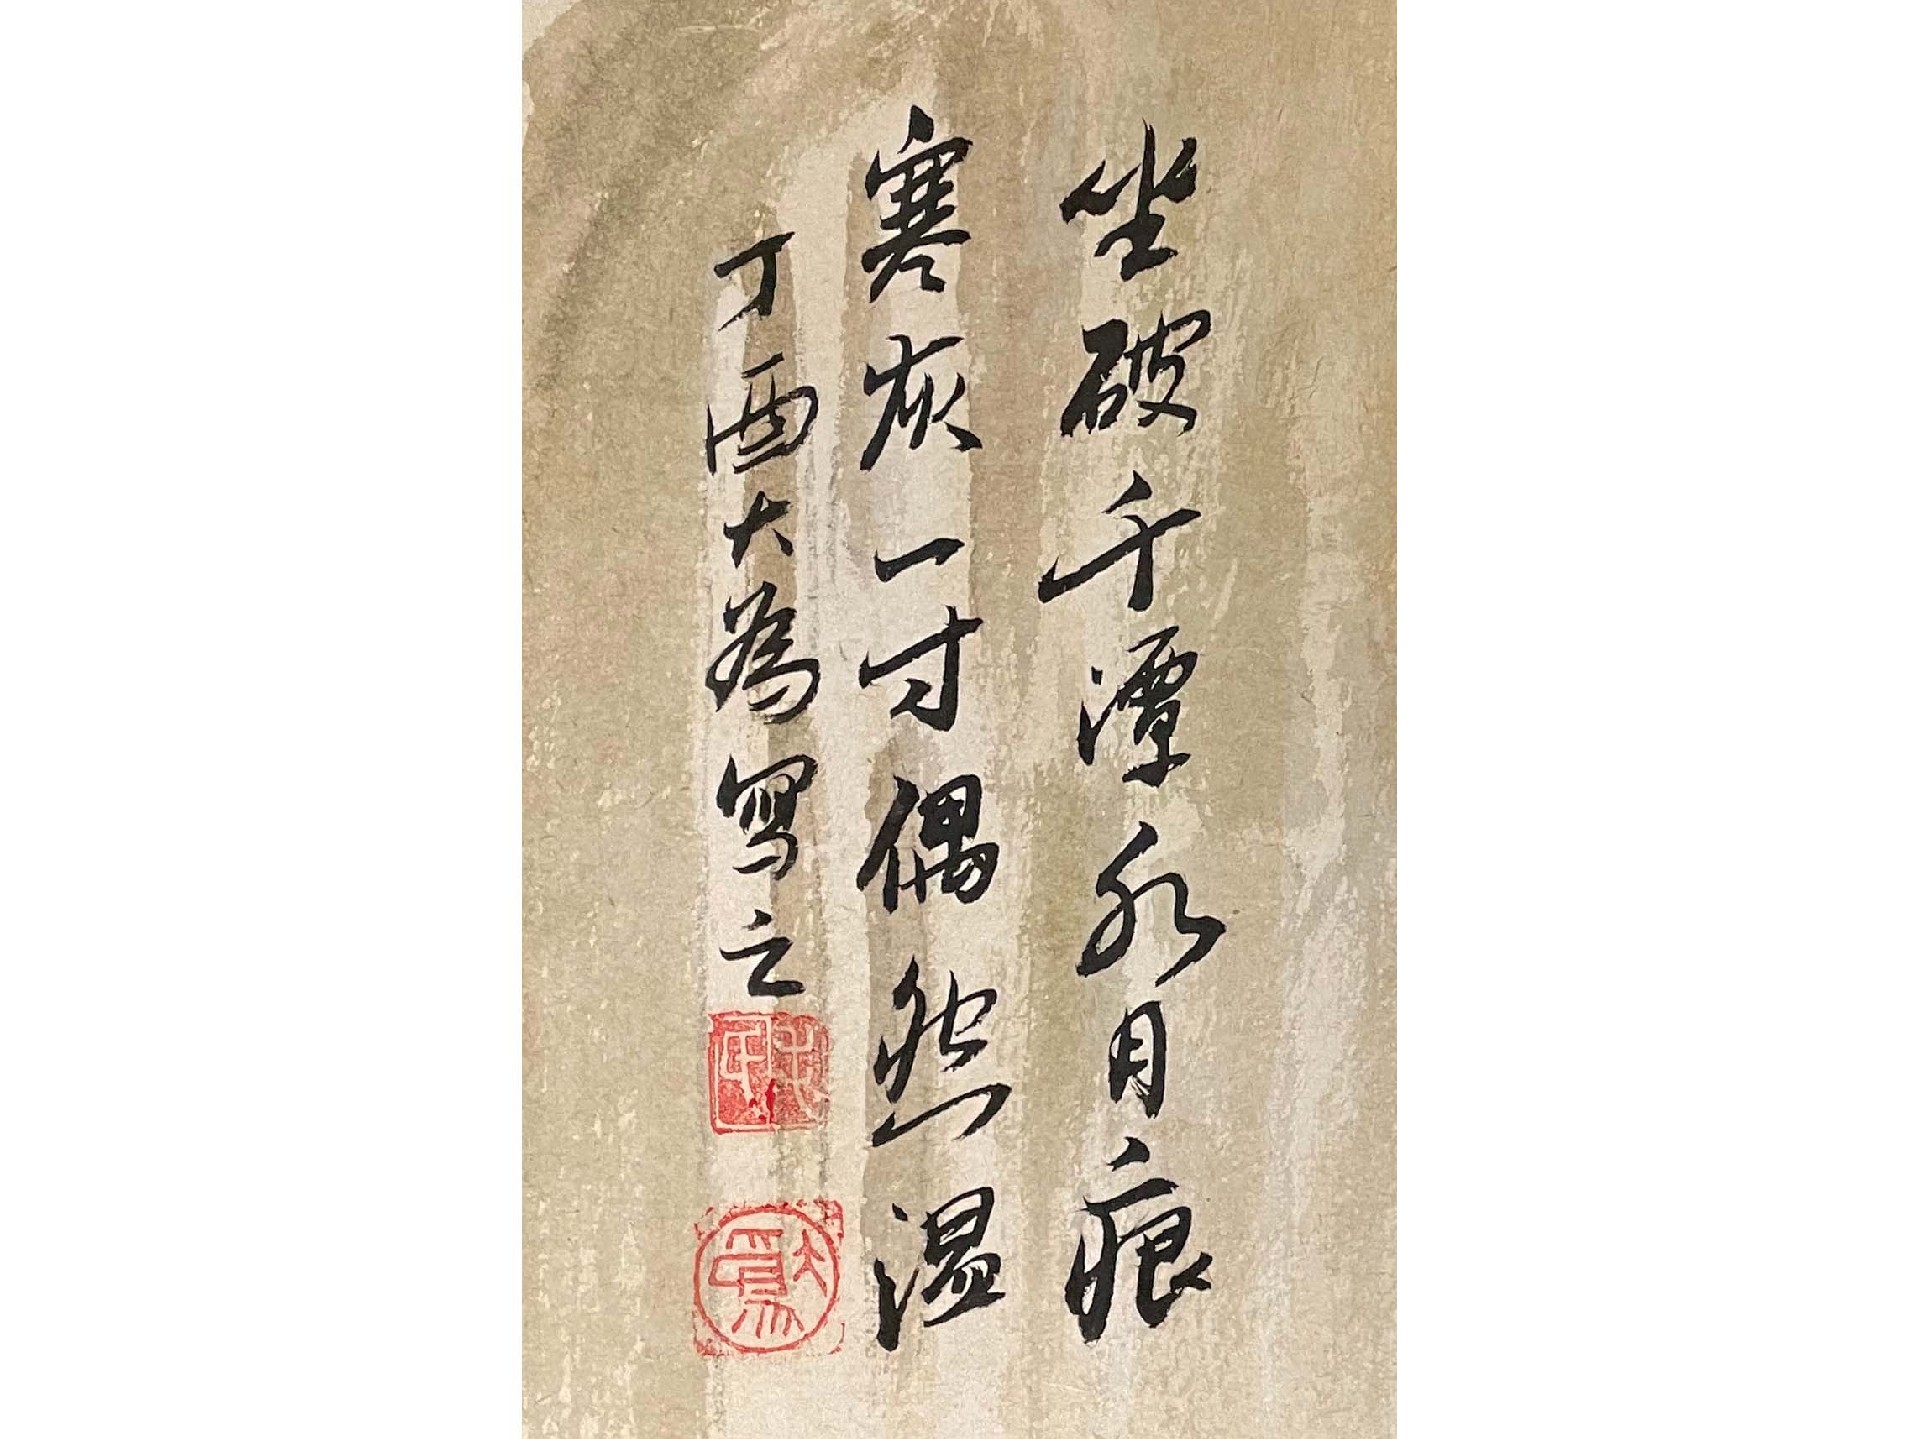 坐破千潭水月痕
寒灰一寸偶然温
丁酉大為寫之
大為